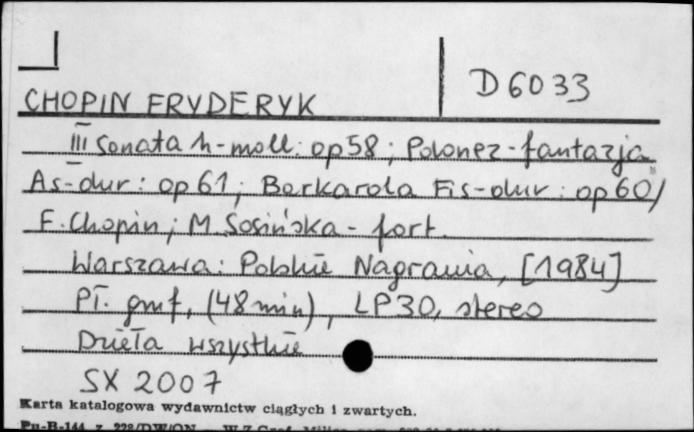 D 6033
CHOPIN FRYDERYK
III Sonata h-moll: op 58; Polonez-fantazja
As-dur: op 61; Barkarola Fis-dur: op 60/
F. Chopin; M. Sosińska - fort.
Warszawa: Polskie Nagrania, [1984]
Pł. gmf, (48 min), LP30, stereo
Dzieła wszystkie
SX 2007
Karta katalogowa wydawnictw ciągłych i zwartych.
Pu-B-144 z. 228/DW/ON